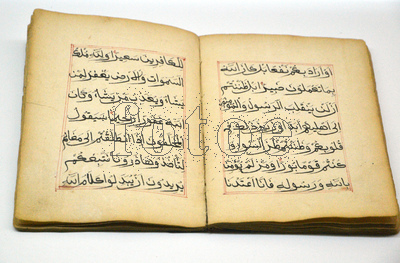 او اراد بكم نفعا بل كان الله
بما تعملون خبيرا بل ظننتم
ان لن ينقلب الرسول والمؤمنون
الى اهليهم ابدا وزين ذلك في
قلوبكم وظننتم ظن السوء و
كنتم قوما بورا ومن لم يؤمن
بالله ورسوله فانا اعتدنا
للكافرين سعيرا ولله ملك
السموات والارض يغفر لمن
يشاء ويعذب من يشاء وكان
الله غفورا رحيما سيقول
المخلفون اذا انطلقتم الى مغانم
لتاخذوها ذرونا نتبعكم
يريدون ان يبدلوا كلام الله
fotoe